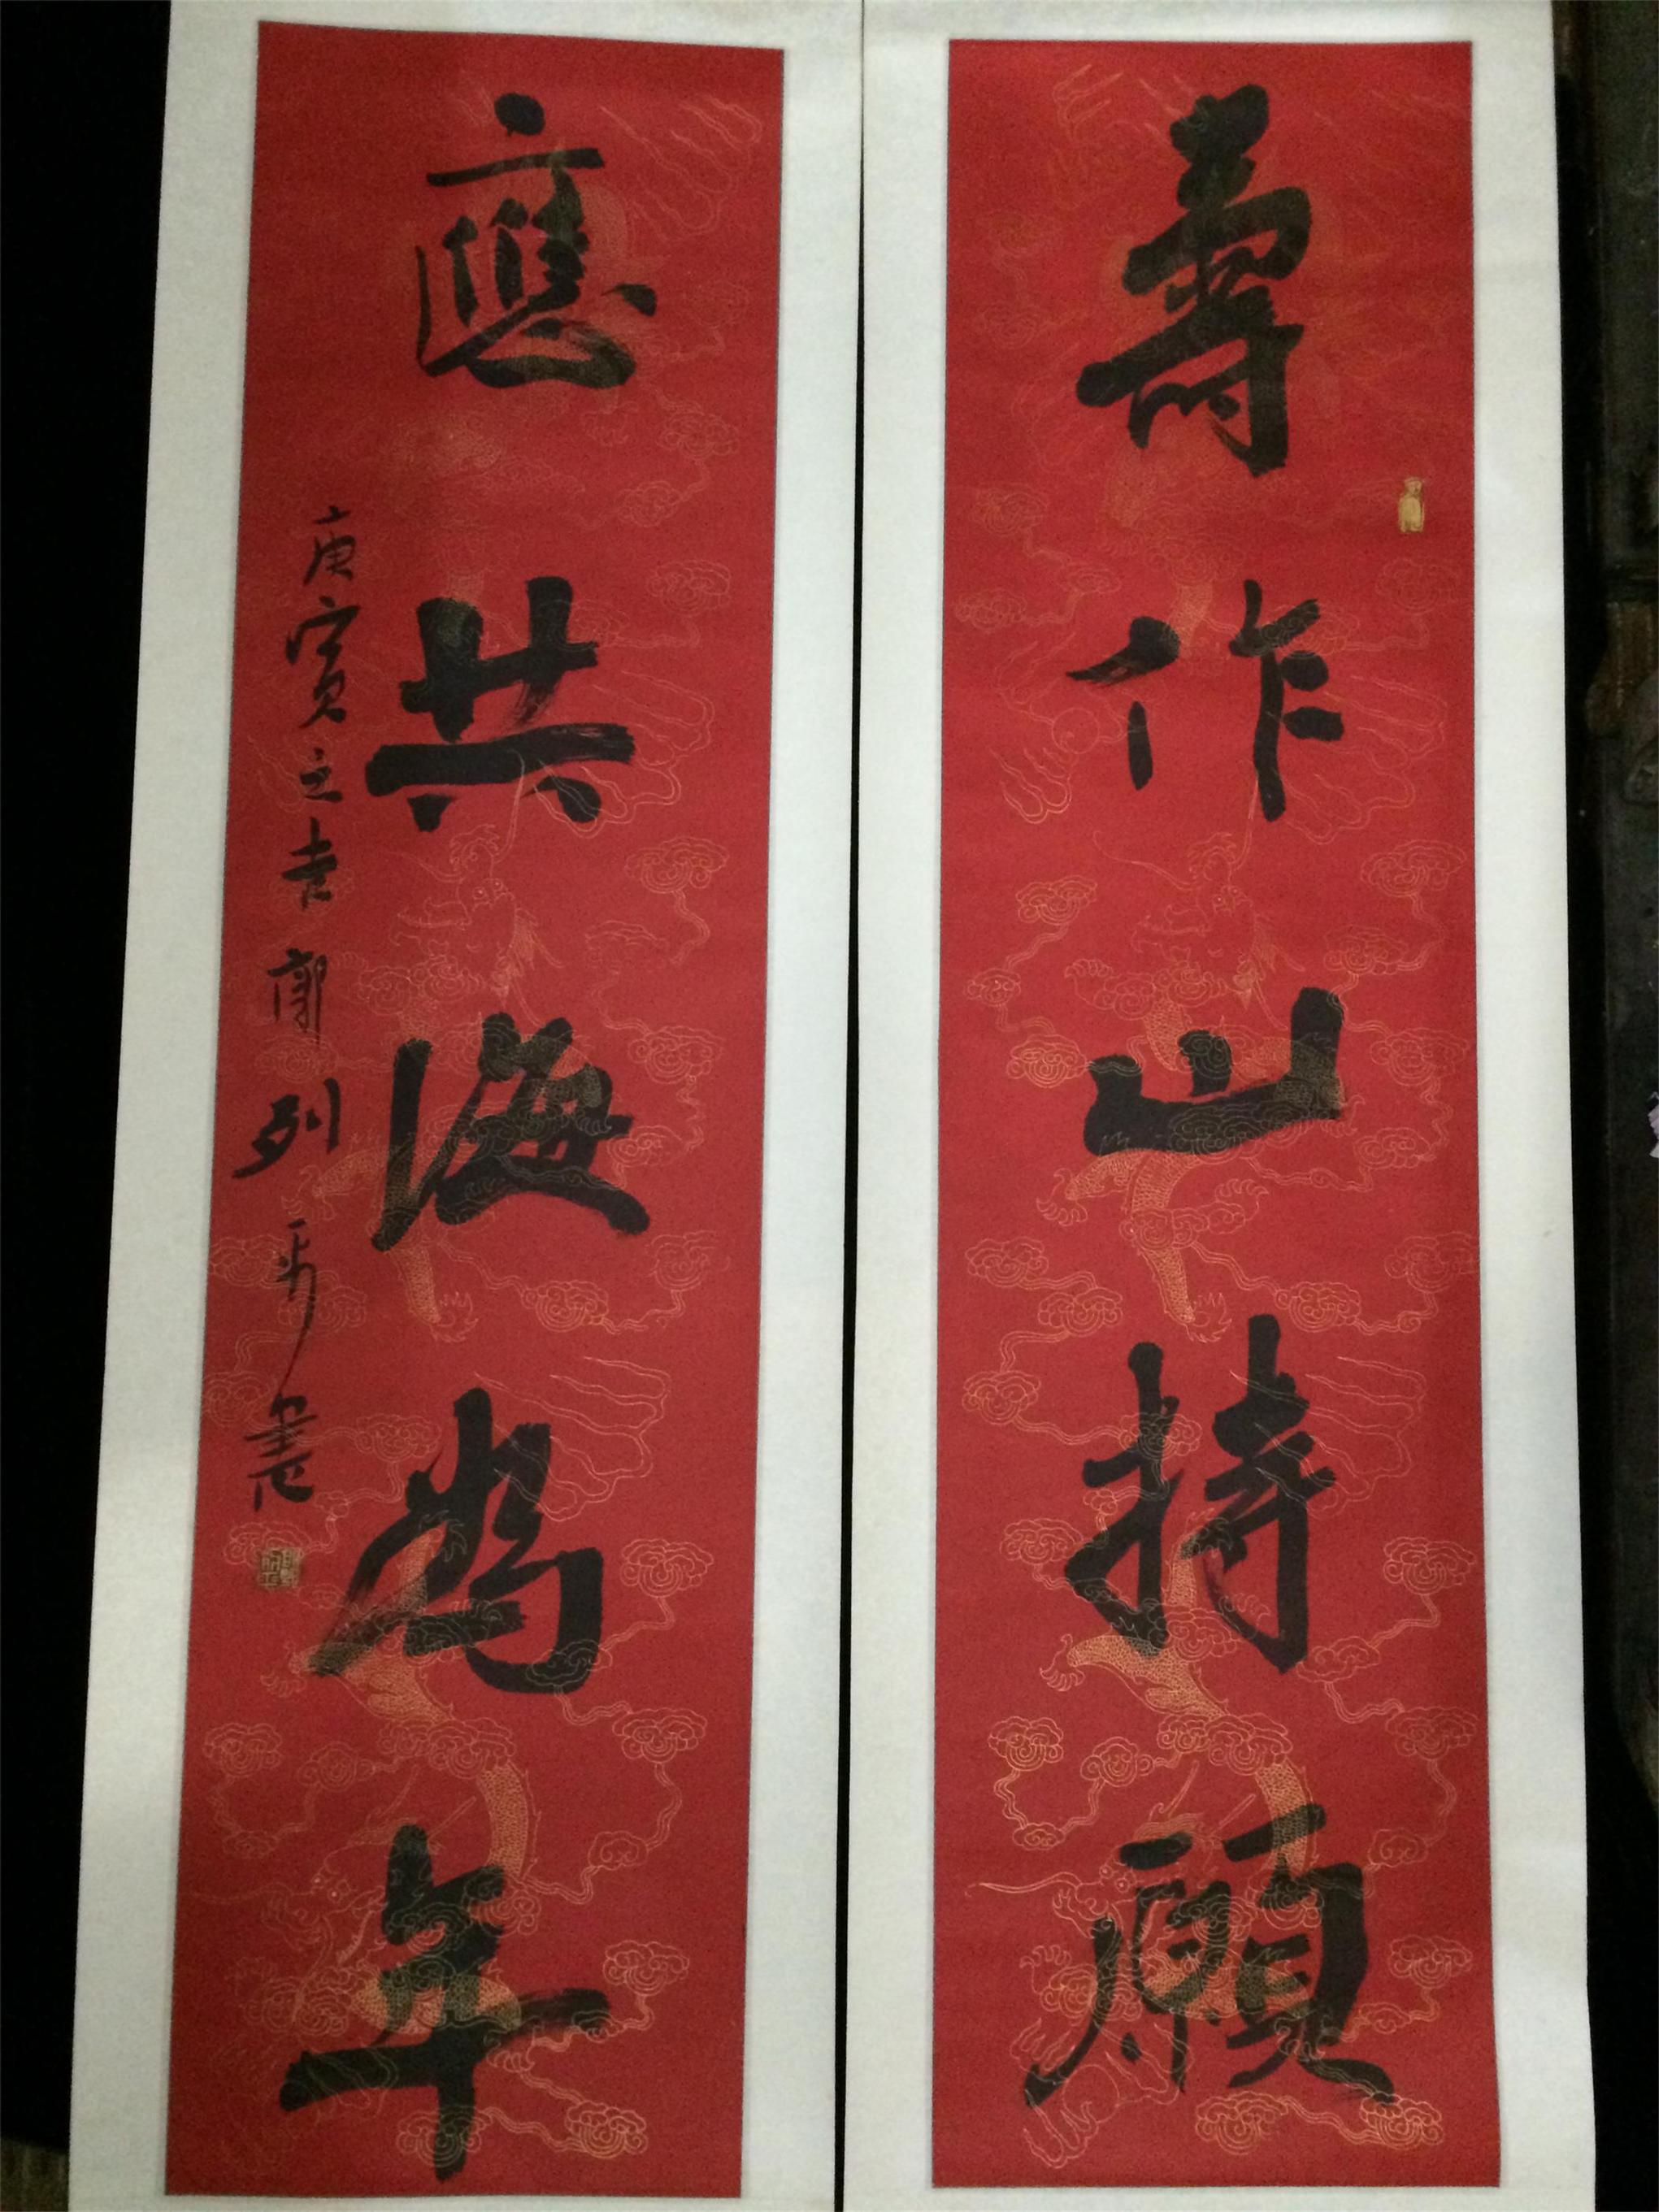 壽作山持願
應共海為年
庚寅之 郭列 書